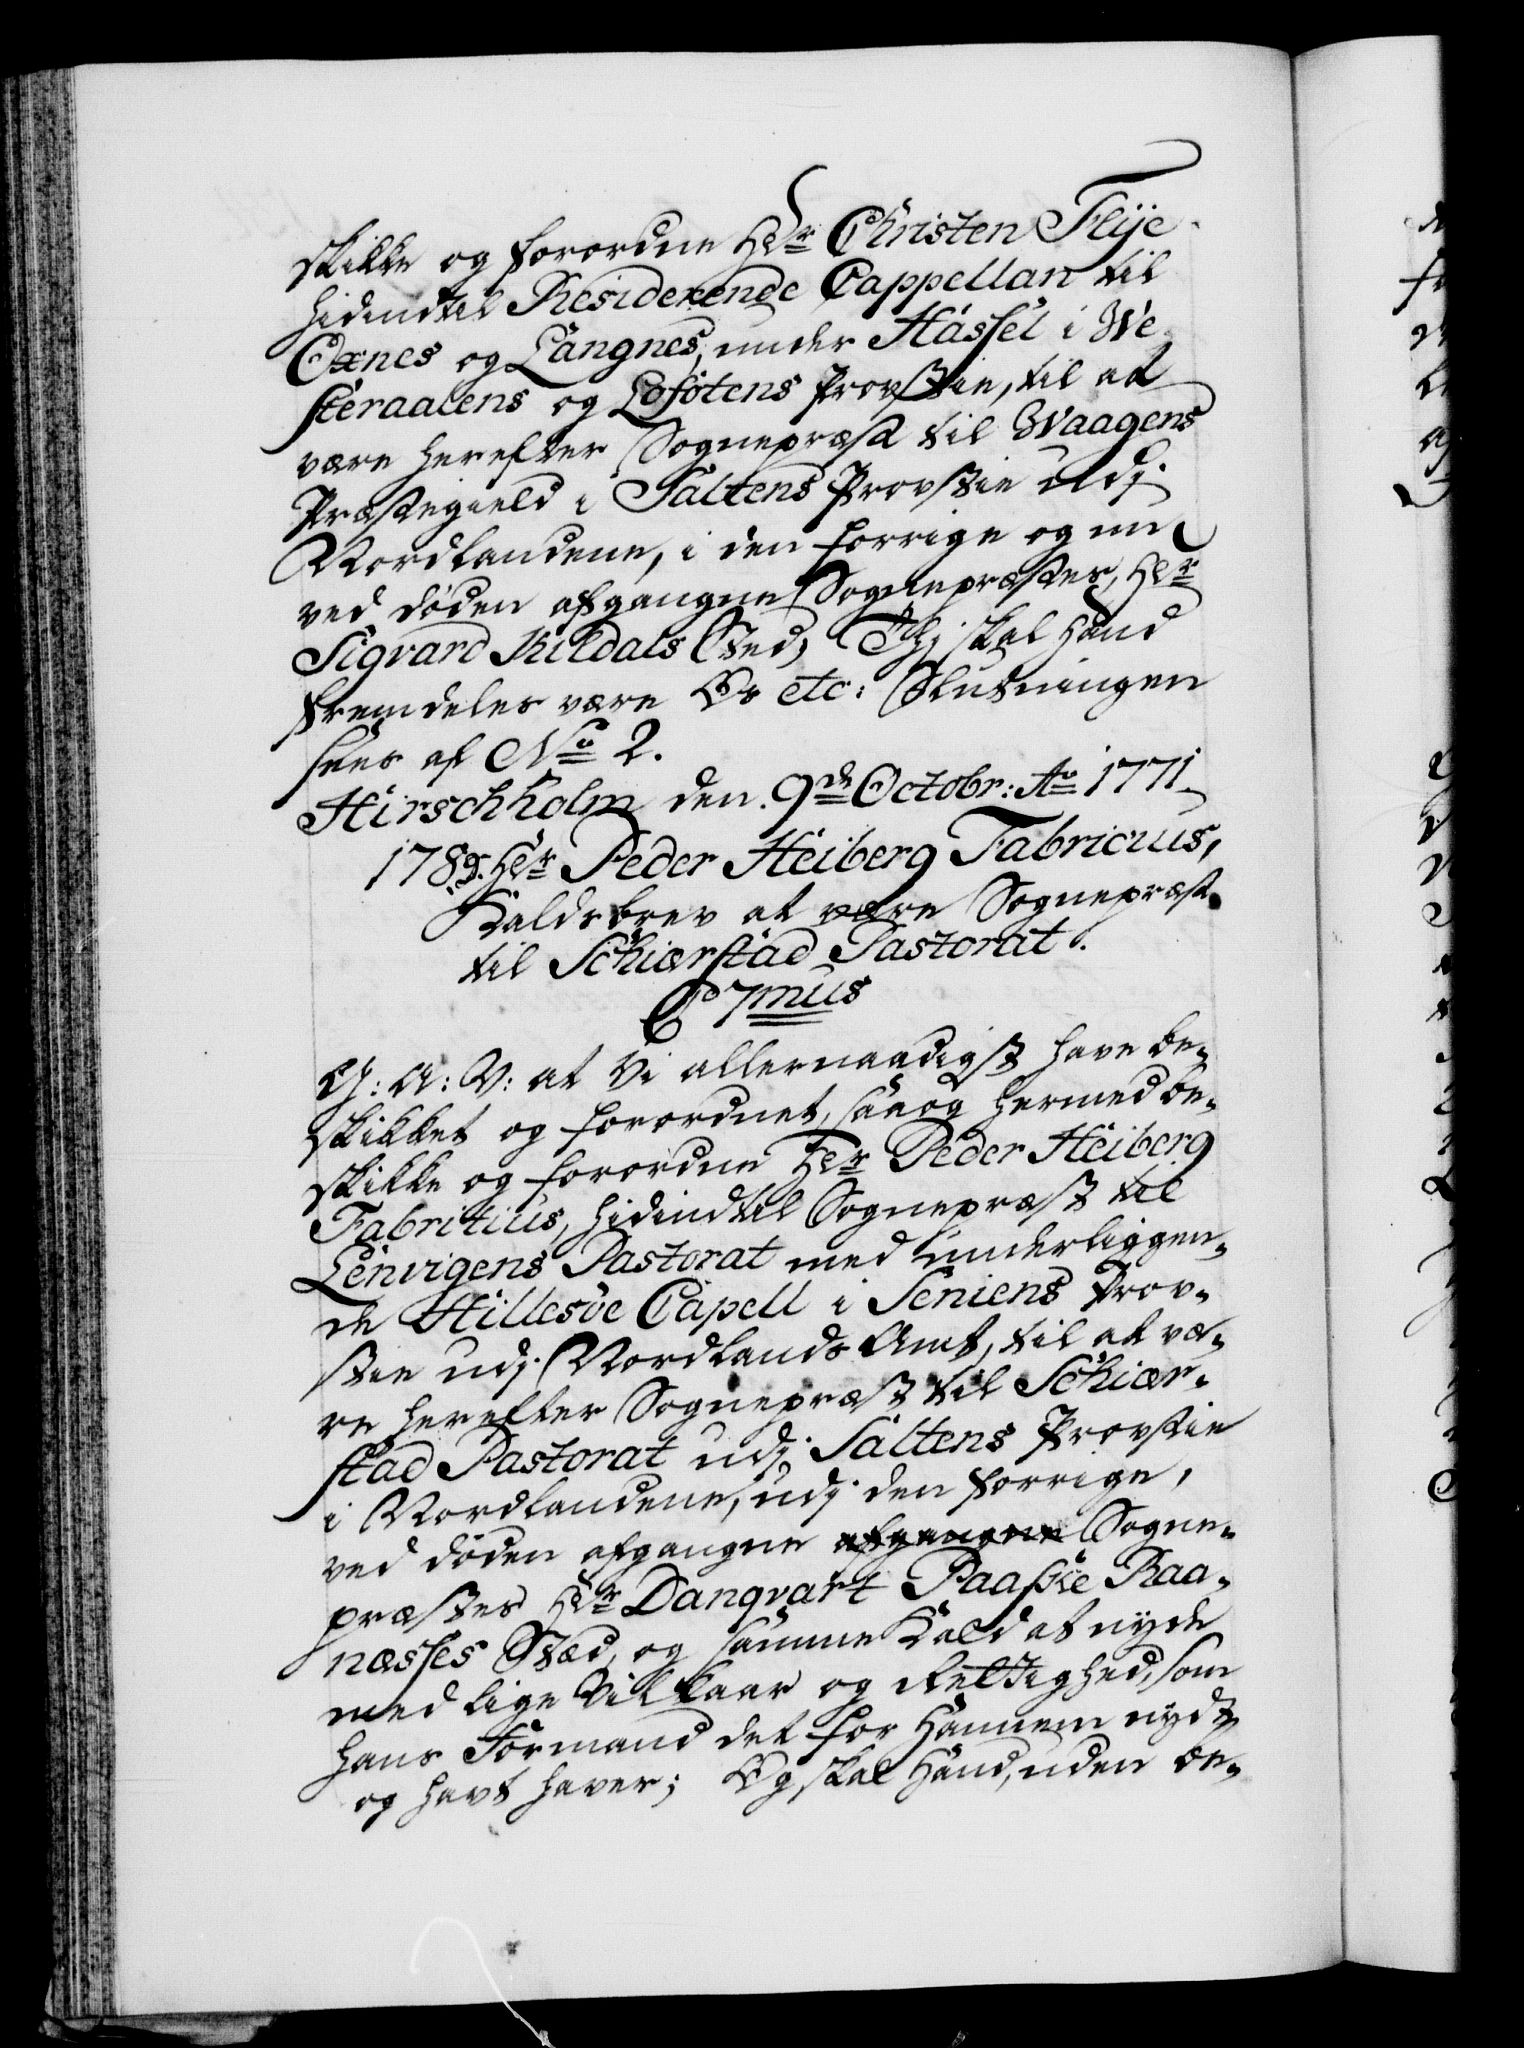 skikke og forordne Hr Christen Flye
hidindtil Residerende Cappellan til
Øxnes og Langnes, under Hassel i We-
steraalens og Lofotens Provstie, til at
være herefter Sognepræst til Waagens
Præstegield i Saltens Provstie udj
Nordlandene, i den forrige og nu
ved døden afgangne Sognepræstes, Hr
Sigvard Kildals Sted; Thj skal Hand
fremdeles være Os etc: Slutningen
sees af No 2.
Hirschholm den 9de Octobr: Ao 1771
178. Hr Peder Heiberg Fabricius,
Kaldsbrev at være Sognepræst
til Schiærstad Pastorat.
C 7mus
G: A: V: at Vi allernaadigst have be-
skikket og forordnet, saa og hermed be-
skikke og forordne Hr Peder Heiberg
Fabritius, hidindtil Sognepræst til
Lenvigens Pastorat med underliggen-
de Hillesøe Capell i Seniens Prov-
stie udj Nordlands Amt, til at væ-
re herefter Sognepræst til Schiær-
stad Pastorat udj Saltens Provstie
i Nordlandene, udj den forrige,
ved døden afgangne afgangne Sogne-
præstes Hr Danqvart Paaske Raa-
næsses Stæd, og samme Kald at nyde
med lige Vilkaar og Rettighed, som
hans Formand det for Hannem nydt
og havt haver; Og skal Hand, uden be-